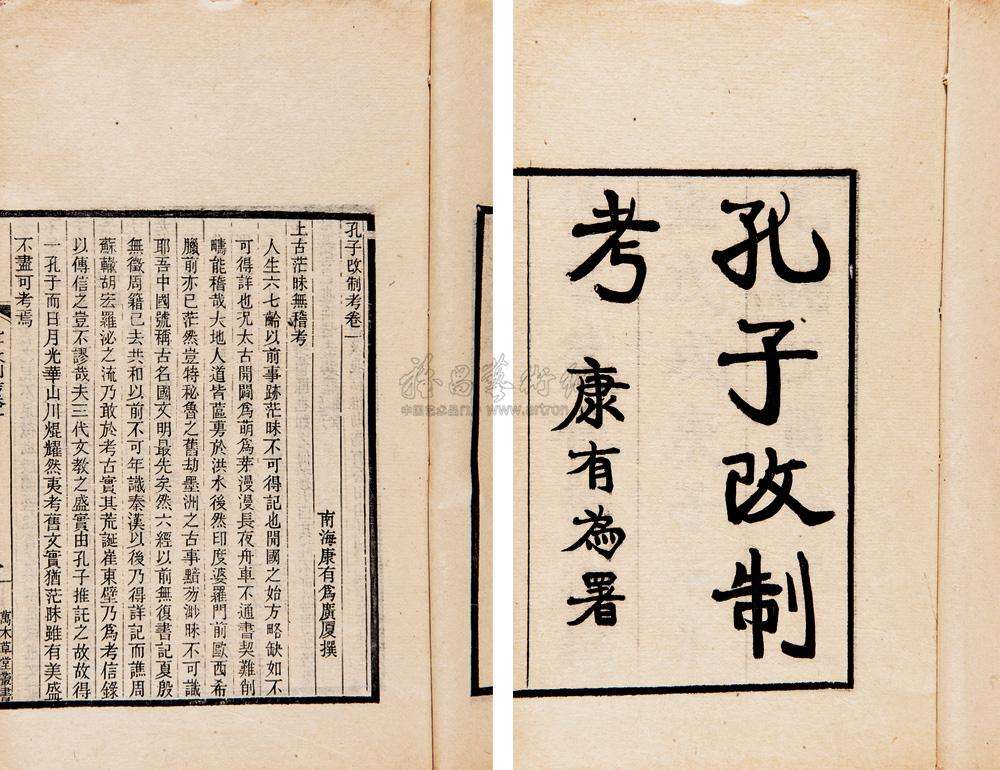 孔子改制
考 康有為署
孔子改制考卷一
南海康有爲廣厦撰
上古茫昧無稽考
人生六七齡以前事跡茫昧不可得記也開國之始方略缺如不
可得詳也况太古開闢爲萌爲芽漫漫長夜舟車不通書契難削
疇能稽哉大地人道皆蓲於洪水後然印度婆羅門前歐西希
臘前亦已茫然豈特秘魯之舊劫墨洲之古事黯芴渺昧不可識
耶吾中國號稱古名國文明最先矣然六經以前無復書記夏殷
無徵周籍已去共和以前不可年識秦漢以後乃得詳記而譙周
蘇轍胡宏羅泌之流乃敢於考古實其荒誕崔東壁乃爲考信錄
以傳信之豈不謬哉夫三代文教之盛實由孔子推託之故故得
一孔子而日月光華山川焜耀然夷考舊文實猶茫昧雖有美盛
不盡可考焉
萬木草堂叢書
www.artron